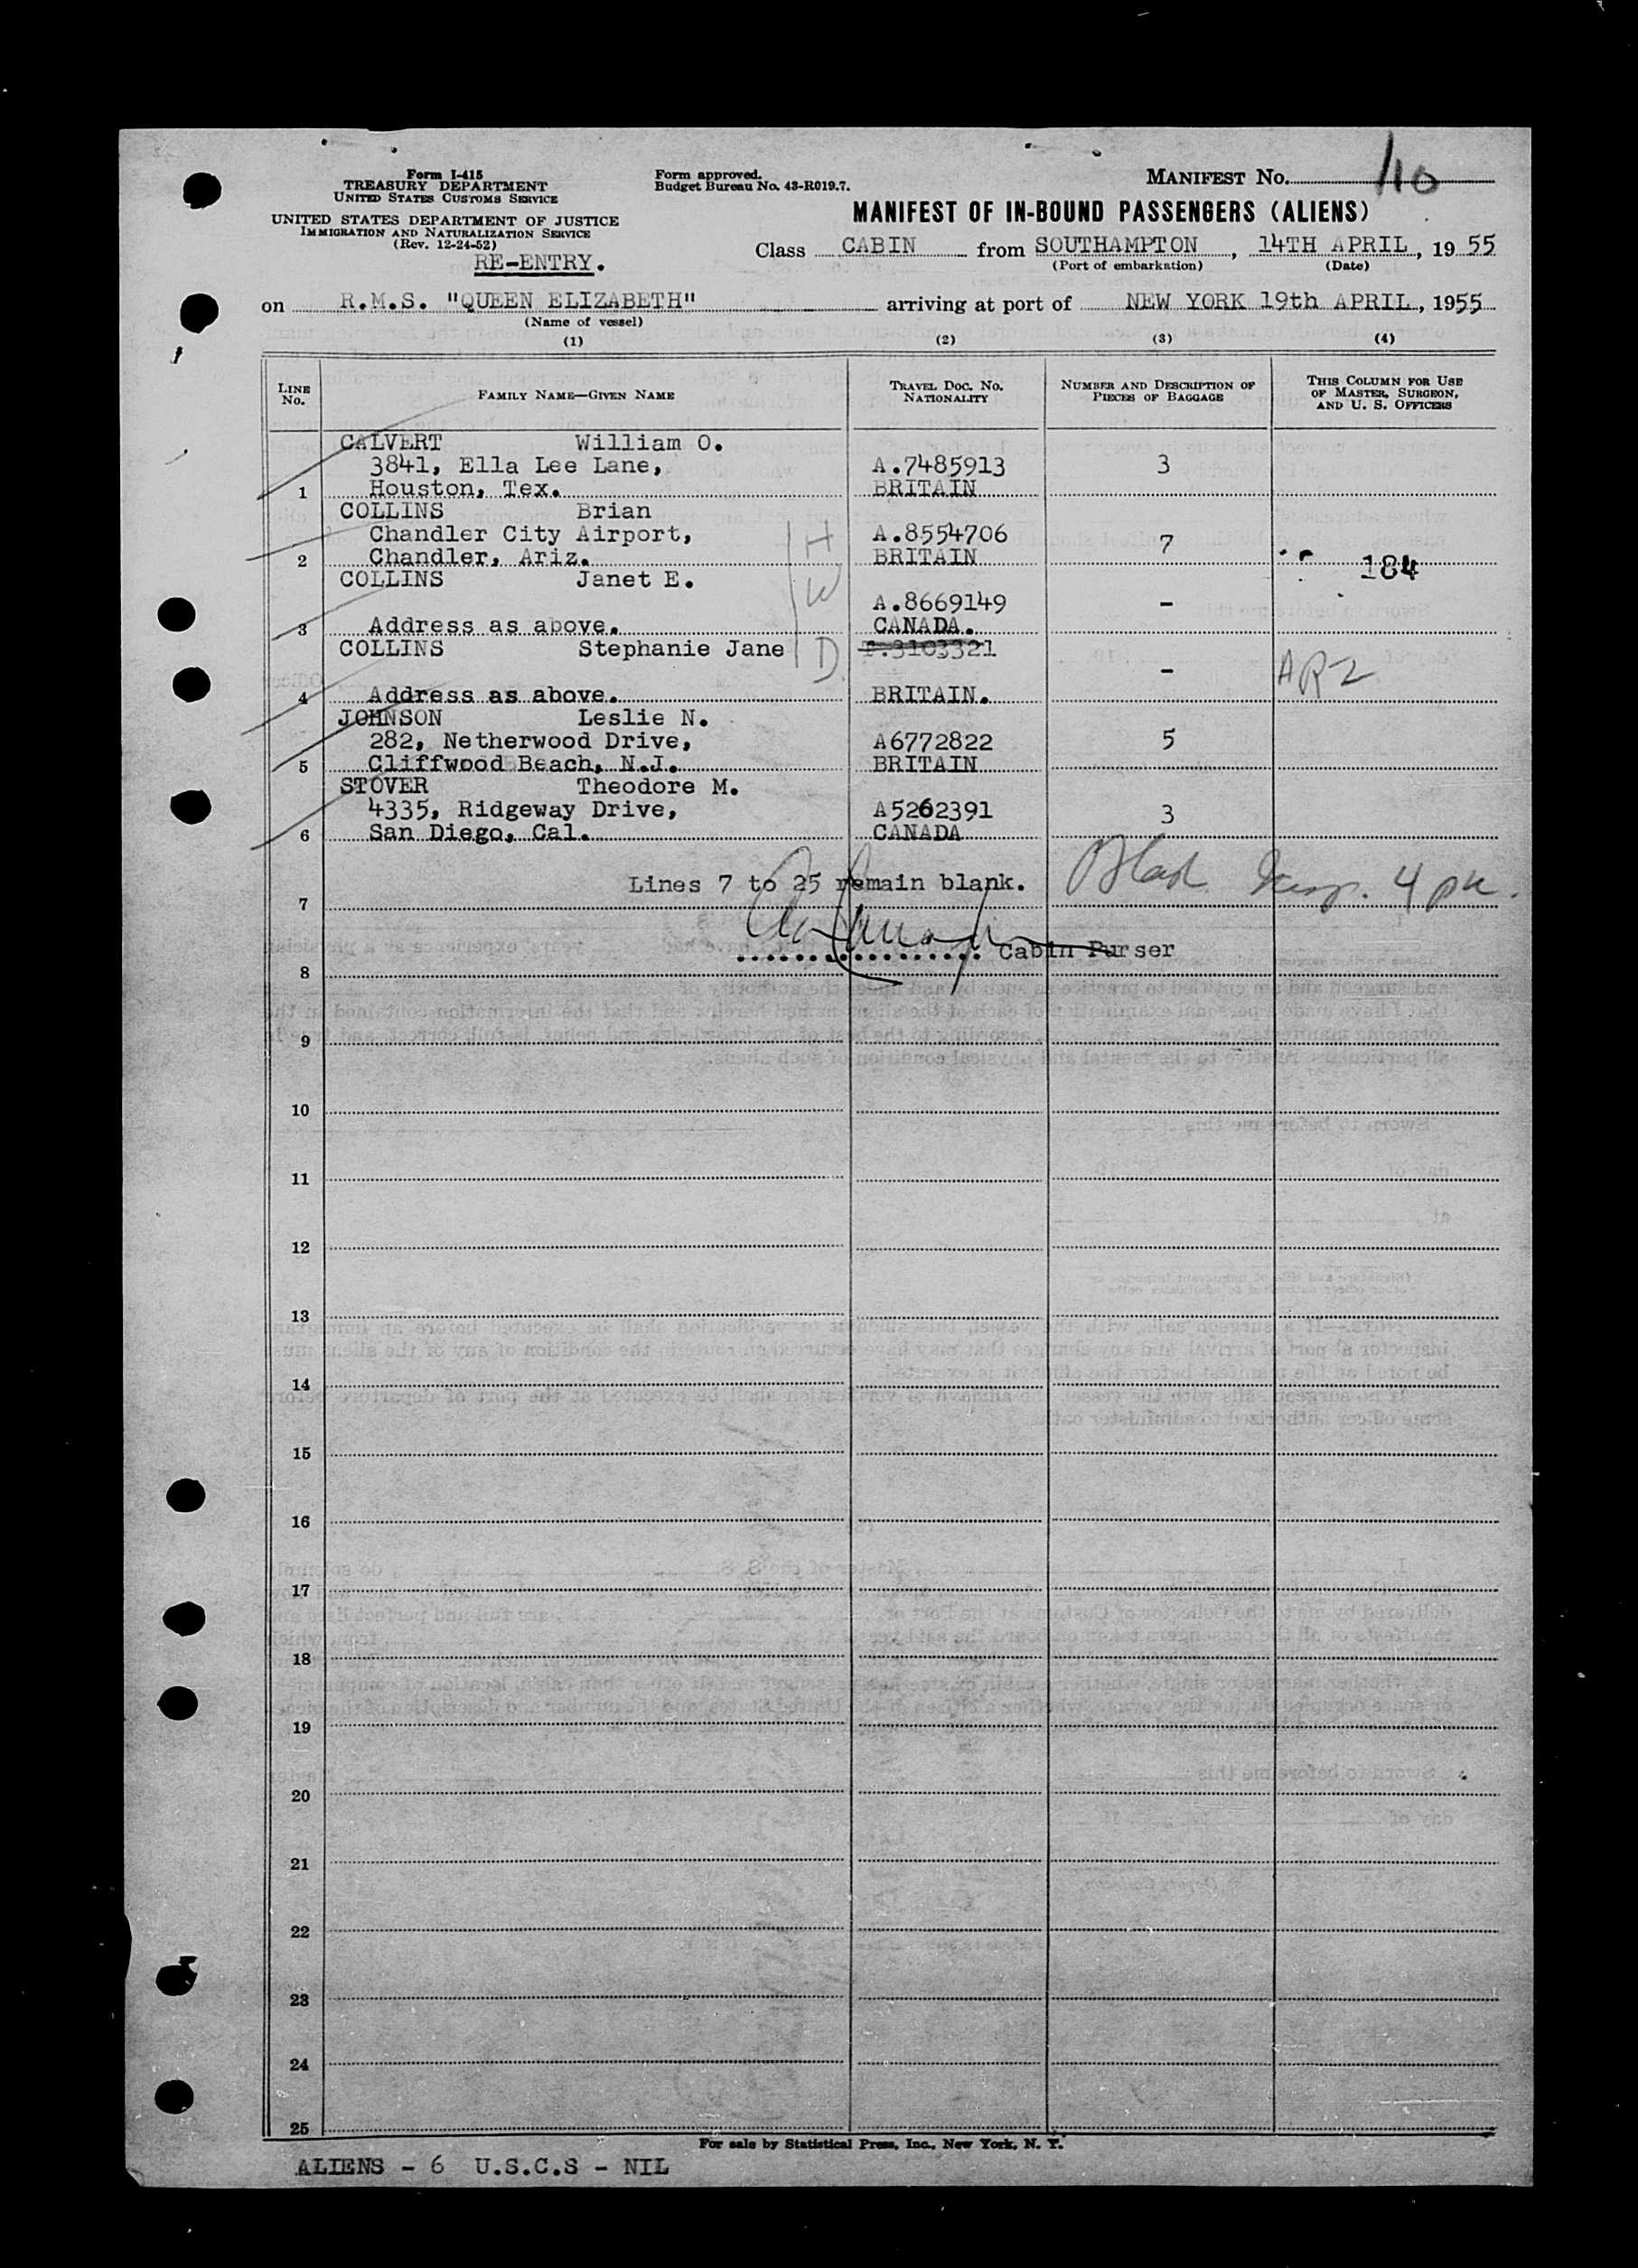 Form I-415
TREASURY DEPARTMENT
UNITED STATES CUSTOMS SERVICE
UNITED STATES DEPARTMENT OF JUSTICE
IMMIGRATION AND NATURALIZATION SERVICE
(Rev. 12-24-52)
RE-ENTRY.
Form approved.
Budget Bureau No. 43-R019.7.
MANIFEST NO. 110
MANIFEST OF IN-BOUND PASSENGERS (ALIENS)
Class CABIN from SOUTHAMPTON, 14TH APRIL, 19 55
(Port of embarkation) (Date)
on R.M.S. "QUEEN ELIZABETH" arriving at port of NEW YORK 19th APRIL, 1955
(Name of vessel)
(1) (2) (3) (4)
LINE NO. FAMILY NAME—GIVEN NAME TRAVEL DOC. NO. NATIONALITY NUMBER AND DESCRIPTION OF PIECES OF BAGGAGE THIS COLUMN FOR USE OF MASTER, SURGEON, AND U. S. OFFICERS
CALVERT William O.
3841, Ella Lee Lane, A.7485913 3
1 Houston, Tex. BRITAIN
COLLINS Brian
Chandler City Airport, H A.8554706 7
2 Chandler, Ariz. BRITAIN 184
COLLINS Janet E. W
A.8669149 -
3 Address as above. CANADA.
COLLINS Stephanie Jane D P.3103321
- AR2
4 Address as above. BRITAIN.
JOHNSON Leslie N.
282, Netherwood Drive, A6772822 5
5 Cliffwood Beach, N.J. BRITAIN
STOVER Theodore M.
4335, Ridgeway Drive, A5262391 3
6 San Diego, Cal. CANADA
Lines 7 to 25 remain blank. 4
7
Cabin Purser
8
9
10
11
12
13
14
15
16
17
18
19
20
21
22
23
24
25
For sale by Statistical Press, Inc., New York, N. Y.
ALIENS - 6 U.S.C.S - NIL